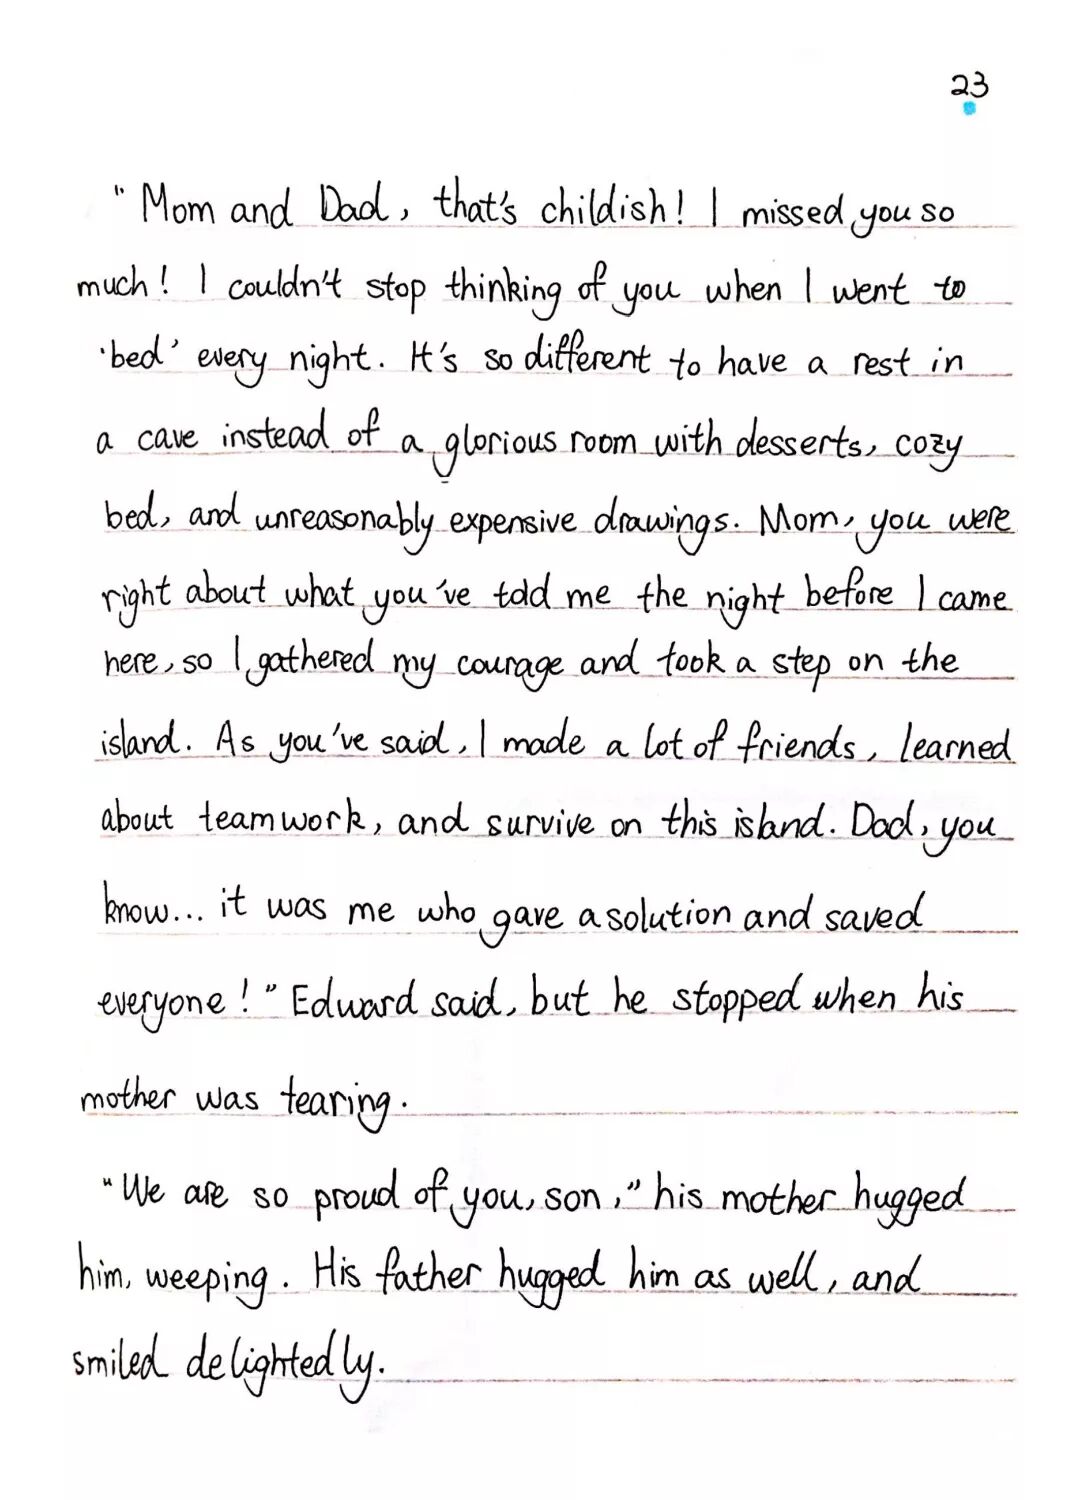 23
"Mom and Dad, that's childish! I missed you so
much! I couldn't stop thinking of you when I went to
'bed' every night. It's so different to have a rest in
a cave instead of a glorious room with desserts, cozy
bed, and unreasonably expensive drawings. Mom, you were
right about what you've told me the night before I came
here, so I gathered my courage and took a step on the
island. As you've said, I made a lot of friends, learned
about teamwork, and survive on this island. Dad, you
know... it was me who gave a solution and saved
everyone!" Edward said, but he stopped when his
mother was tearing.
"We are so proud of you, son," his mother hugged
him, weeping. His father hugged him as well, and
smiled delightedly.